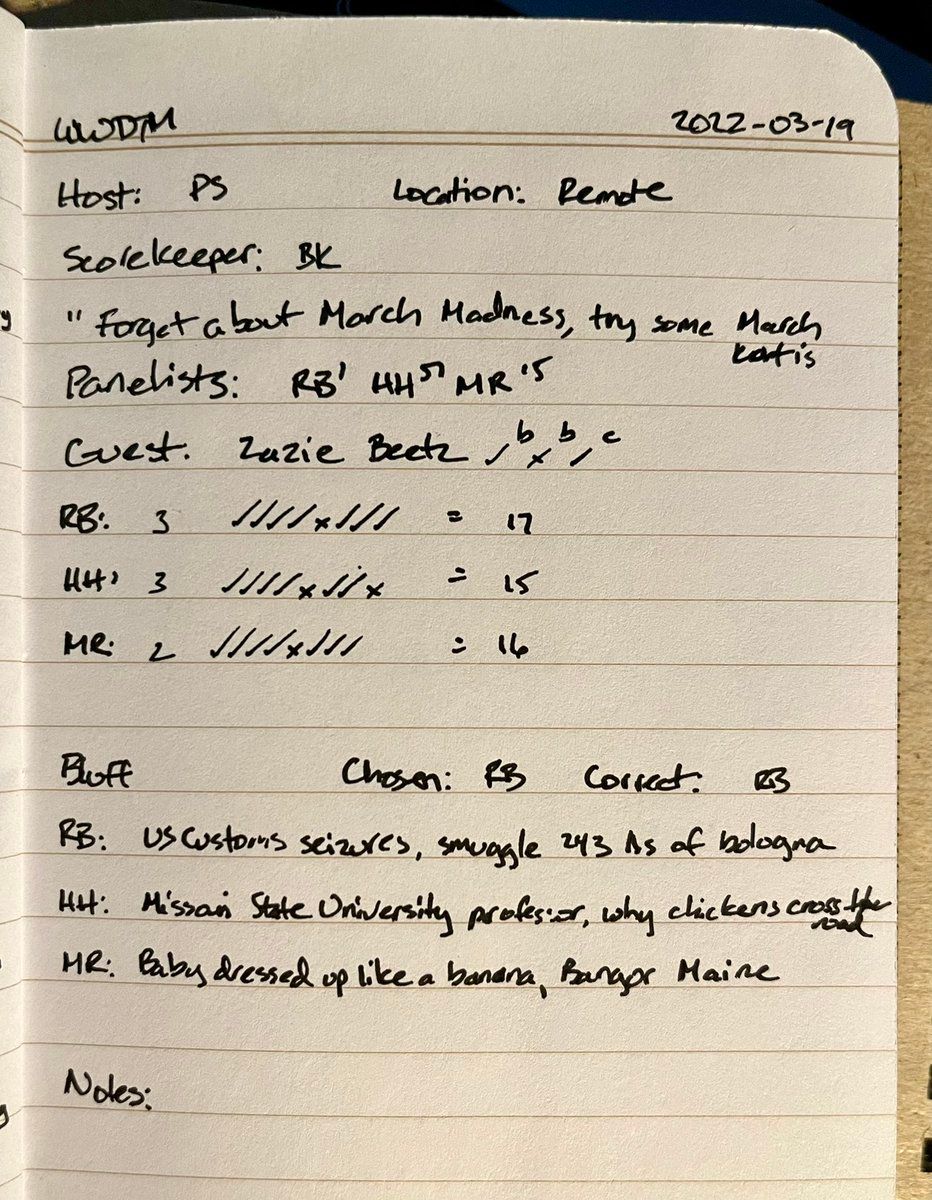 WWDTM 2022-03-19
Host: PS Location: Remote
Scorekeeper: BK
"Forget about March Madness, try some March
Kurtis
Panelists: RB' HH⁵' MR'⁵
Guest. Zazie Beetz ✓ᵇ xᵇ ✓ᶜ
RB: 3 ////x/// = 17
HH: 3 ////x//x = 15
MR: 2 ////x/// = 16
Bluff Chosen: RB Correct: RB
RB: US Customs seizures, smuggle 243 lbs of bologna
HH: Missouri State University professor, why chickens cross the
road
MR: Baby dressed up like a banana, Bangor Maine
Notes: